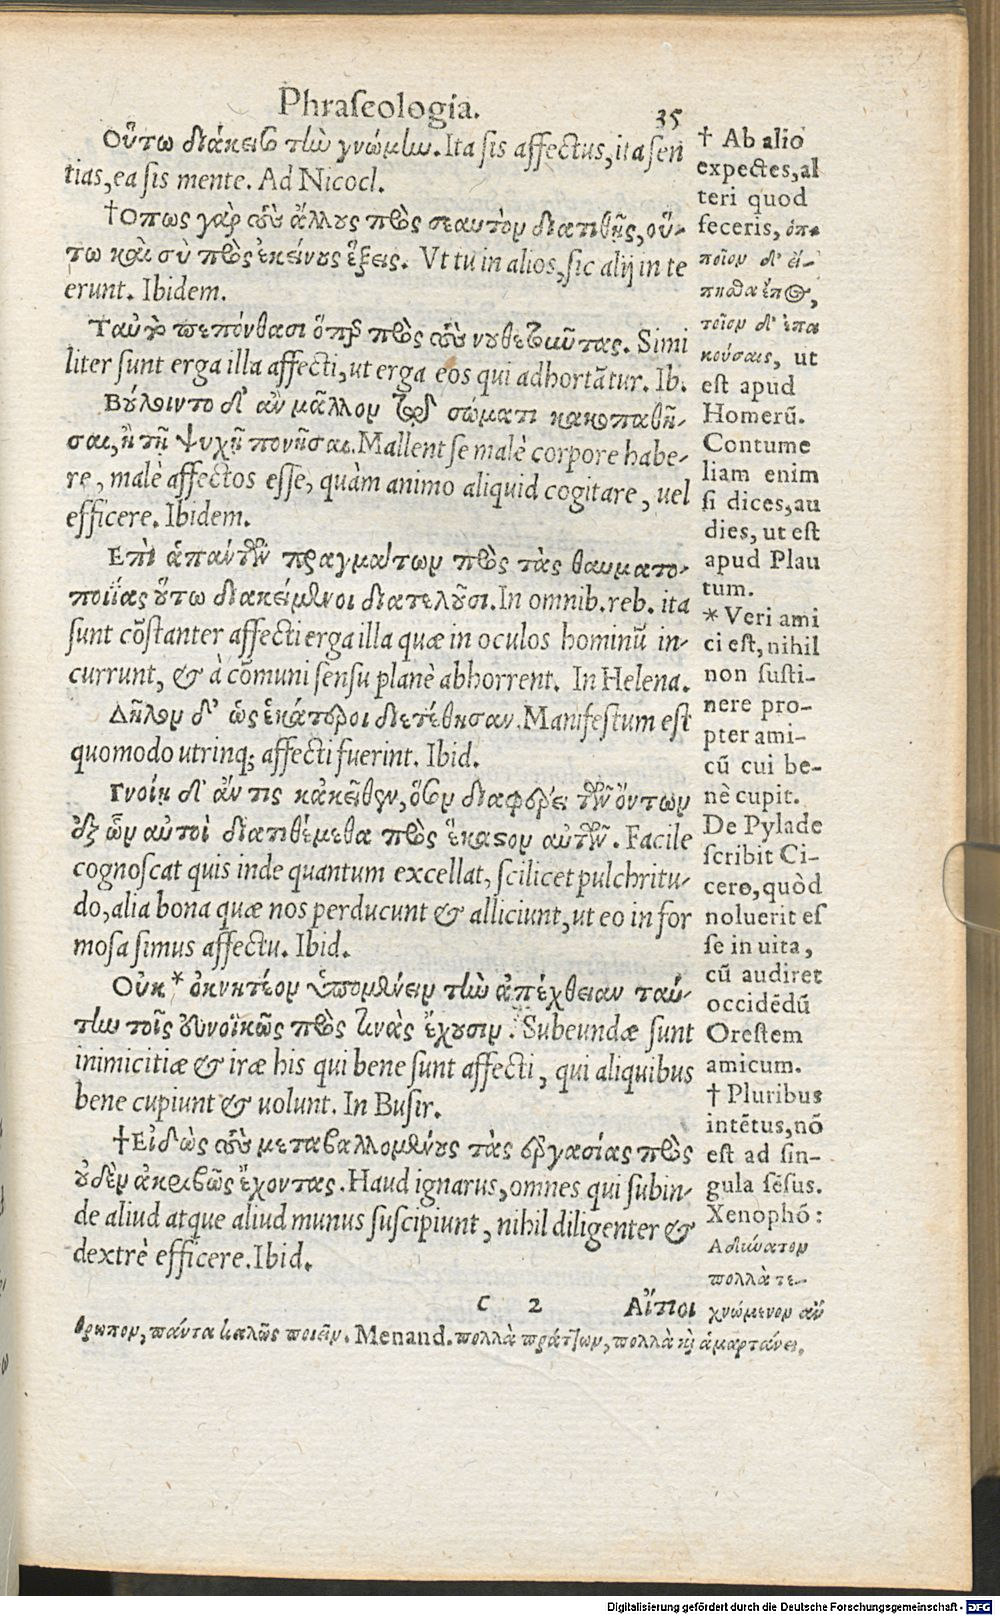 Phraſeologia. 35
Οὕτω διάκεισο τὴν γνώμην. Ita ſis affectus, ita ſen
tias, ea ſis mente. Ad Nicocl.
†Οπως γὰρ ἂν τοὺς ἄλλους πρὸς σεαυτὸν διατιθῇς, οὕ-
τω καὶ σὺ πρὸς ἐκείνους ἕξεις. Vt tu in alios, ſic alij in te
erunt. Ibidem.
Ταυτὸ πεπόνθασι ὅπερ πρὸς τοὺς νουθετοῦντας. Simi
liter ſunt erga illa affecti, ut erga eos qui adhortãtur. Ib.
Βούλοιντο δ' ἂν μᾶλλον τῷ σώματι κακοπαθῆ-
σαι, ἢ τῇ ψυχῇ πονῆσαι. Mallent ſe malè corpore habe-
re, malè affectos eſſe, quàm animo aliquid cogitare, uel
efficere. Ibidem.
Επὶ ἁπάντων τῶν πραγμάτων πρὸς τὰς θαυματο-
ποιΐας οὕτω διακείμενοι διατελοῦσι. In omnib. reb. ita
ſunt cõſtanter affecti erga illa quæ in oculos hominũ in-
currunt, & à cõmuni ſenſu planè abhorrent. In Helena.
Δῆλον δ' ὡς ἑκάτεροι διετέθησαν. Manifeſtum eſt
quomodo utrinq; affecti fuerint. Ibid.
Γνοίη δ' ἄν τις κἀκεῖθεν, ὅσον διαφέρει τῶν ὄντων
ἐξ ὧν αὐτοὶ διατιθέμεθα πρὸς ἕκαστον αὐτῶν. Facile
cognoſcat quis inde quantum excellat, ſcilicet pulchritu-
do, alia bona quæ nos perducunt & alliciunt, ut eo in for
moſa ſimus affectu. Ibid.
Οὐκ * ὀκνητέον ὑπομένειν τὴν ἀπέχθειαν ταύ-
την τοῖς εὐνοϊκῶς πρός τινας ἔχουσιν. Subeundæ ſunt
inimicitiæ & iræ his qui bene ſunt affecti, qui aliquibus
bene cupiunt & uolunt. In Buſir.
†Εἰδὼς τοὺς μεταβαλλομένους τὰς ἐργασίας πρὸς
οὐδὲν ἀκριβῶς ἔχοντας. Haud ignarus, omnes qui ſubin-
de aliud atque aliud munus ſuſcipiunt, nihil diligenter &
dextrè efficere. Ibid.
† Ab alio
expectes, al
teri quod
feceris, ὁπ-
ποῖον δ' εἴ-
πησθα ἔπος,
τοῖον δ' ἐπα
κούσαις, ut
eſt apud
Homerũ.
Contume
liam enim
ſi dices, au
dies, ut eſt
apud Plau
tum.
* Veri ami
ci eſt, nihil
non ſuſti-
nere pro-
pter ami-
cũ cui be-
nè cupit.
De Pylade
ſcribit Ci-
cero, quòd
noluerit eſ
ſe in uita,
cũ audiret
occidẽdũ
Oreſtem
amicum.
† Pluribus
intẽtus, nõ
eſt ad ſin-
gula ſẽſus.
Xenophõ:
Αδύνατον
πολλὰ τε-
χνώμενον ἄν
θρωπον, πάντα καλῶς ποιεῖν. Menand. πολλὰ πράττων, πολλὰ καὶ ἁμαρτάνει.
C 2 Αἴτιοι
Digitalisierung gefördert durch die Deutsche Forschungsgemeinschaft - DFG